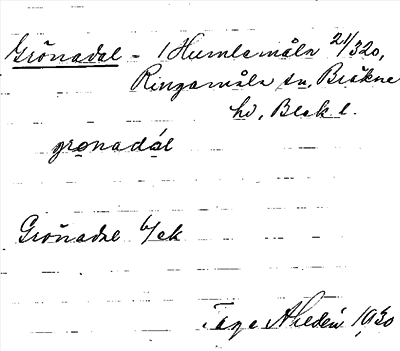 Grönadal - / Humlamåla 21/320,
Ringamåla sn, Bräkne
hd, Blek. l.
gronadal
Grönadal b/ek
Tage Ahldén 1930